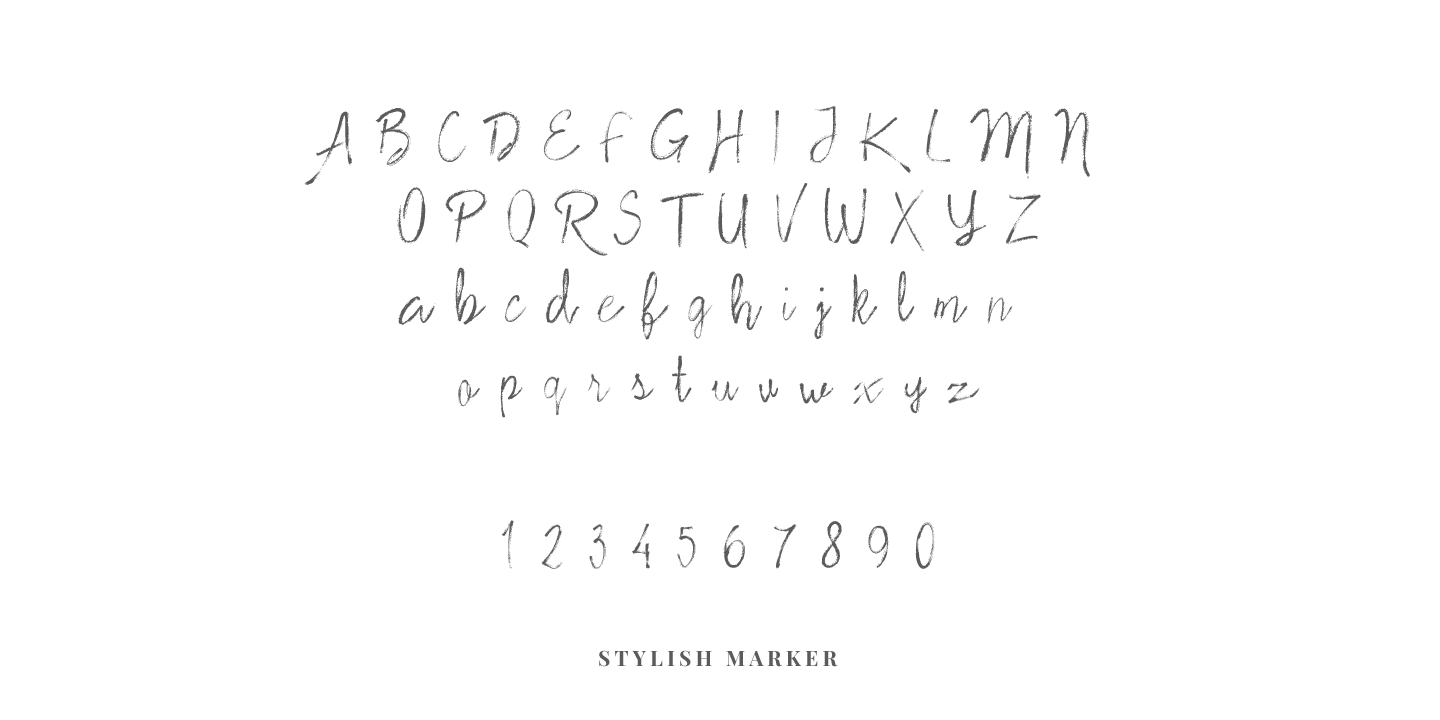 A B C D E F G H I J K L M N
O P Q R S T U V W X Y Z
a b c d e f g h i j k l m n
o p q r s t u v w x y z
1 2 3 4 5 6 7 8 9 0
STYLISH MARKER